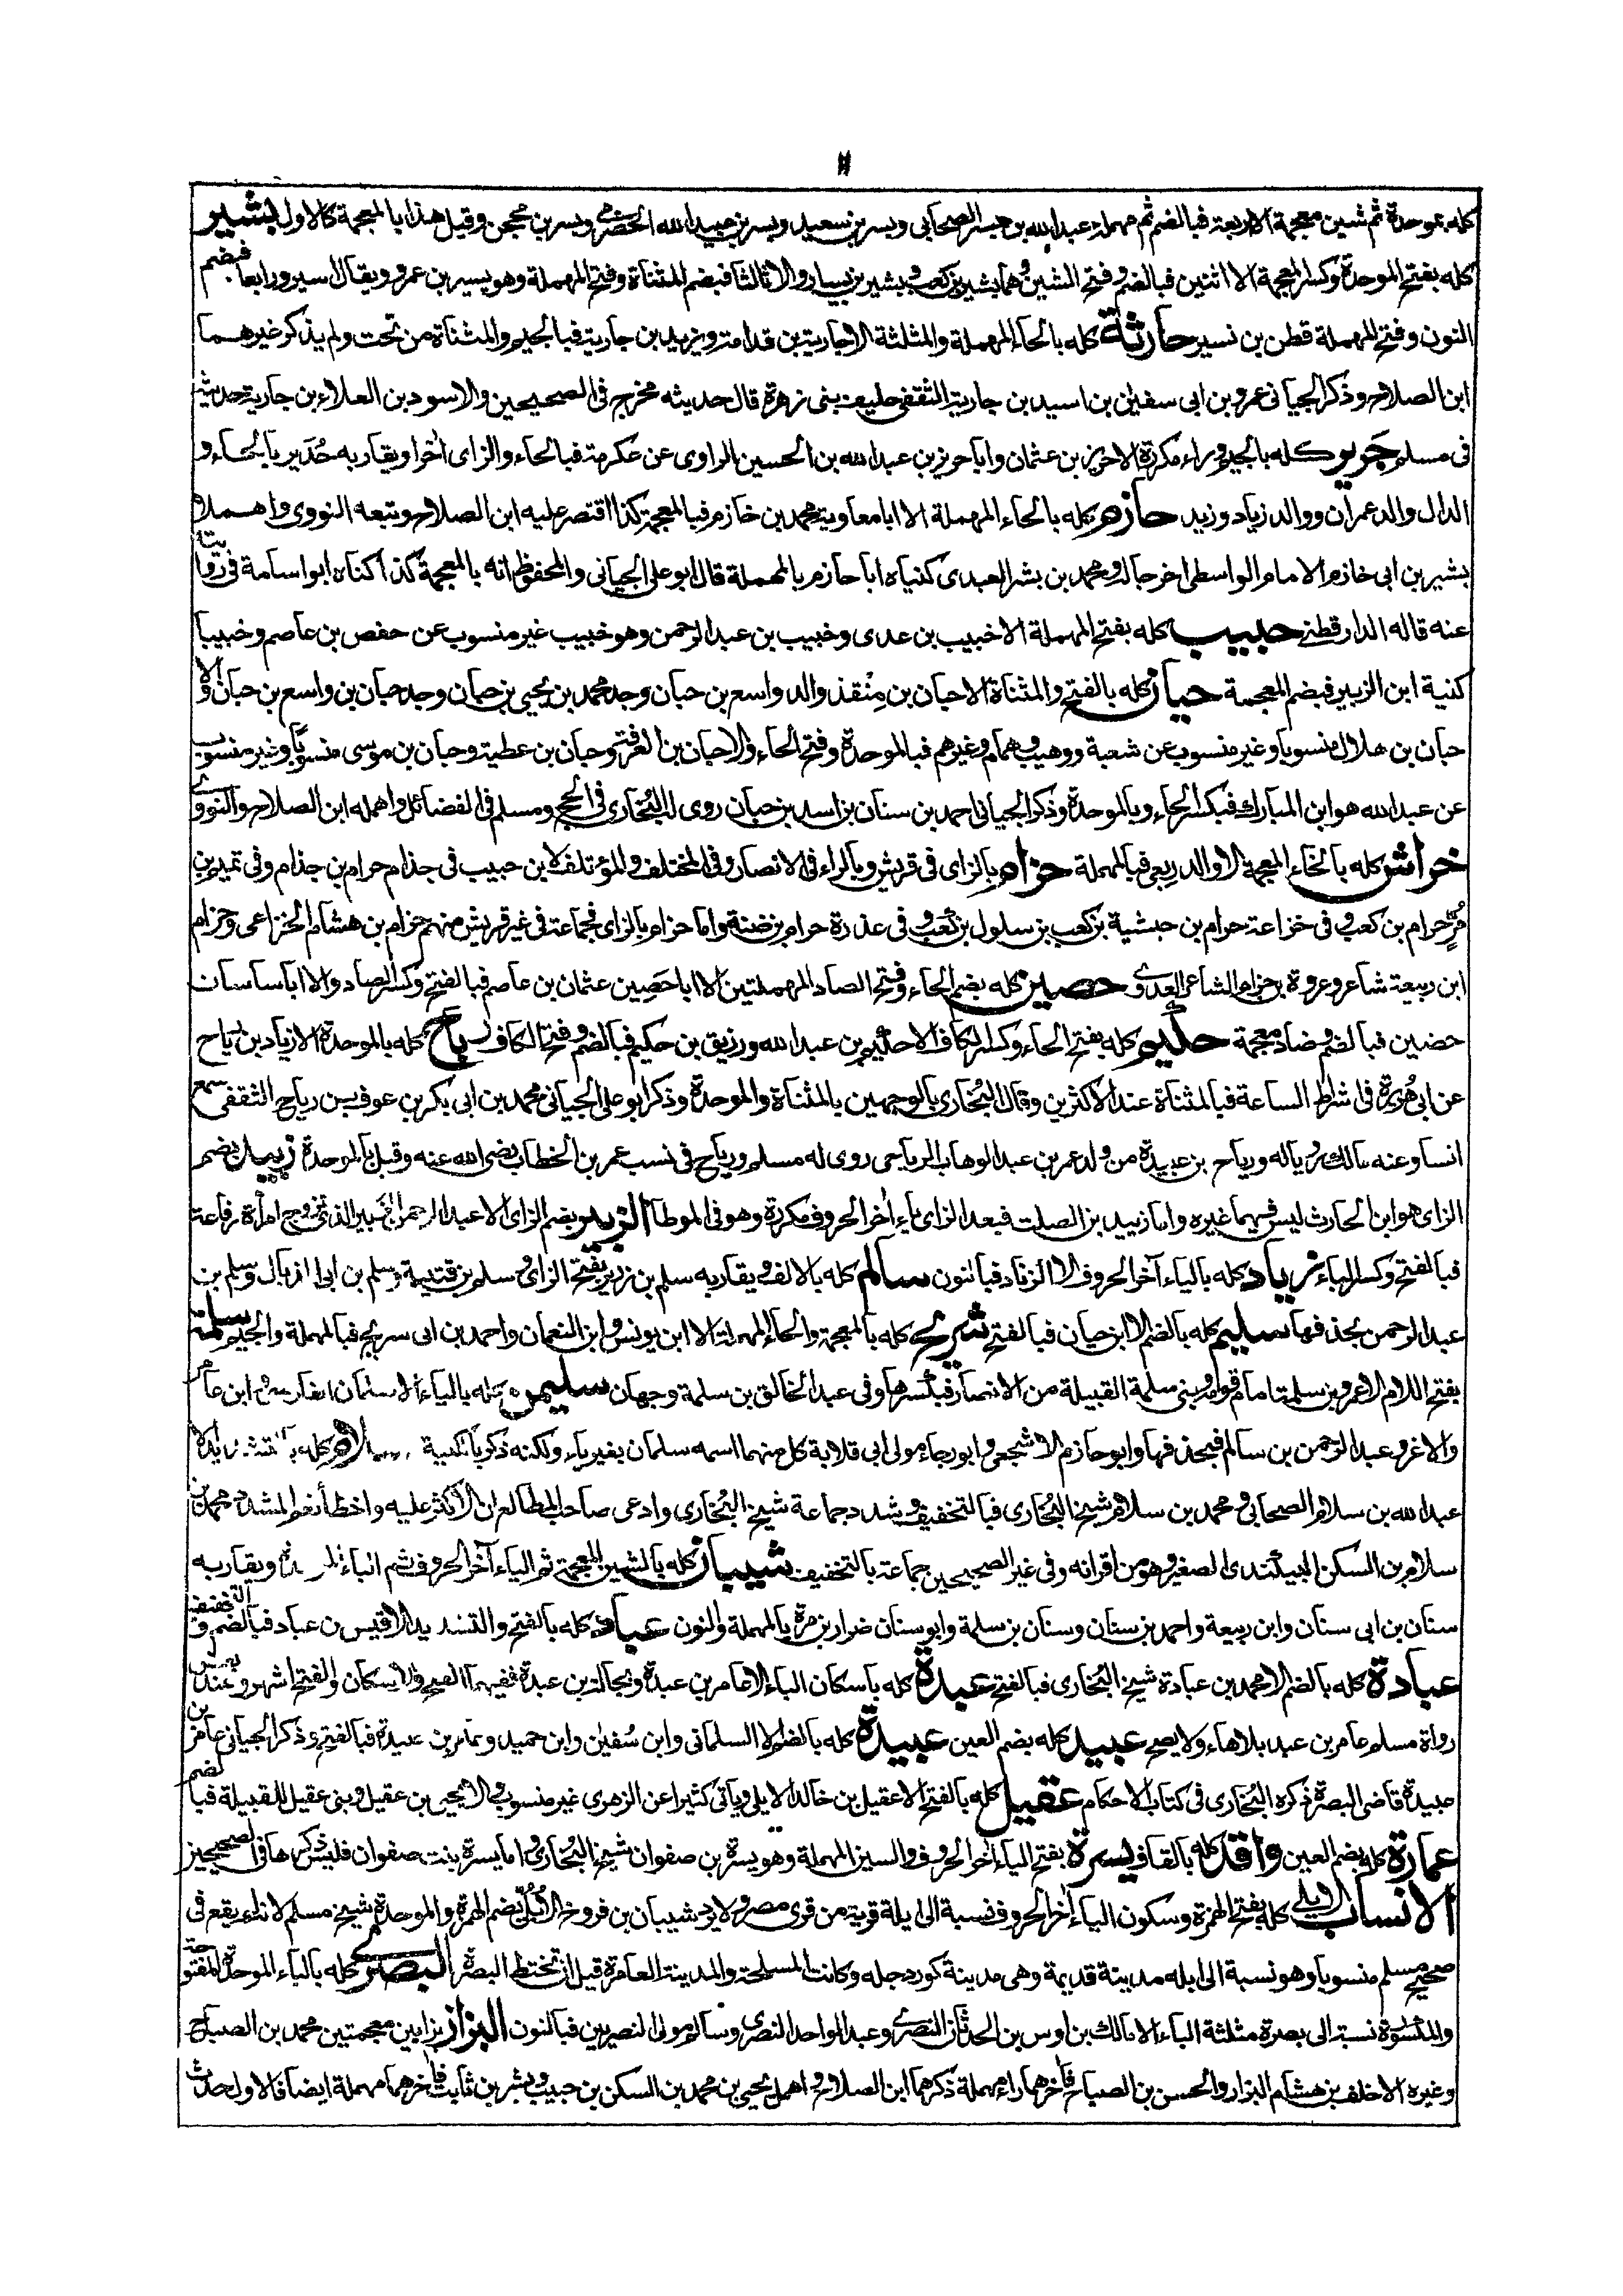 ١١
كله بموحدة ثم شين معجمة الا اربعة فبالضم ثم مهملة عبد الله بن بسر الصحابى وبسر بن سعيد وبسر بن عبيد الله الحضرمى وبسر بن محجن وقيل هذا بالمعجمة كالاول بشير
كله بفتح الموحدة وكسر المعجمة الا اثنين فبالضم وفتح الشين وهما بشير بن كعب وبشير بن يسار والا ثالثا فبضم المثناة وفتح المهملة وهو يسير بن عمرو ويقال اسير ورابعا فبضم
النون وفتح المهملة قطن بن نسير حارثة كله بالحاء المهملة والمثلثة الا جارية بن قدامة ويزيد بن جارية فبالجيم والمثناة من تحت ولم يذكر غيرهما
ابن الصلاح وذكر الجيانى عمرو بن ابى سفين بن اسيد بن جارية الثقفى حليف بنى زهرة قال حديثه مخرج فى الصحيحين والاسود بن العلاء بن جارية حديثه
فى مسلم جَرير كله بالجيم وراء مكررة الا حريز بن عثمان وابا حريز بن عبد الله بن الحسين الراوى عن عكرمة فبالحاء والزاى آخرا ويقاربه حُدَير بالحاء و
الدال والد عمران ووالد زياد وزيد حازم كله بالحاء المهملة الا ابا معاوية محمد بن خازم فبالمعجمة كذا اقتصر عليه ابن الصلاح وتبعه النووى واهملا
بشير بن ابى خازم الامام الواسطى اخرجا له ومحمد بن بشر العبدى كنياه ابا حازم بالمهملة قال ابو على الجيانى والمحفوظ انه بالمعجمة كذا كناه ابو اسامة فى روايته
عنه قاله الدارقطنى حبيب كله بفتح المهملة الا خبيب بن عدى وخبيب بن عبد الرحمن وهو خبيب غير منسوب عن حفص بن عاصم وخبيبا
كنية ابن الزبير فبضم المعجمة حيان كله بالفتح والمثناة الا حبان بن مِنْقذ والد واسع بن حبان وجد محمد بن يحيى بن حبان وجد حبان بن واسع بن حبان والا
حبان بن هلال منسوبا وغير منسوب عن شعبة ووهيب وهمام وغيرهم فبالموحدة وفتح الحاء والا حبان بن العرقة وحبان بن عطية وحبان بن موسى منسوبًا وغير منسوب
عن عبد الله هو ابن المبارك فبكسر الحاء وبالموحدة وذكر الجيانى احمد بن سنان بن اسد بن حبان روى له البخارى فى الحج ومسلم فى الفضائل واهمله ابن الصلاح والنووى
خراش كله بالخاء المعجمة الا والد ربعى فبالمهملة حزام بالزاى فى قريش وبالراء فى الانصار وفى المختلف والمؤتلف لابن حبيب فى جذام حرام بن جذام وفى تميم بن
مُرّ حرام بن كعب وفى خزاعة حرام بن حبشية بن كعب بن سلول بن كعب وفى عذرة حرام بن ضنة واما حزام بالزاى فجماعة فى غير قريش منهم حزام بن هشام الخزاعى وحزام
ابن ربيعة شاعر وعروة بن حزام الشاعر العدوى حصين كله بضم الحاء وفتح الصاد المهملتين الا ابا حَصِين عثمان بن عاصم فبالفتح وكسر الصاد والا ابا ساسان
حضين فبالضم وضاد معجمة حكيم كله بفتح الحاء وكسر الكاف الا حكيم بن عبد الله ورزيق بن حكيم فبالضم وفتح الكاف رباح كله بالموحدة الا زياد بن رياح
عن ابى هُريرة فى اشراط الساعة فبالمثناة عند الاكثرين وقال البُخارى بالوجهين بالمثناة والموحدة وذكر ابو على الجيانى محمد بن ابى بكر بن عوف بن رياح الثقفى سمع
انسا وعنه مالك رويا له ورياح بن عبيدة من ولد عمر بن عبد الوهاب الرياحى روى له مسلم ورياح فى نسب عمر بن الخطاب رضى الله عنه وقيل بالموحدة زبيد بضم
الزاى هو ابن الحارث ليس فيهما غيره واما زييد بن الصلت فبعد الزاى ياء آخر الحروف مكررة وهو فى الموطأ الزبير بضم الزاى الا عبد الرحمن بن الزَبير الذى تزوج امرأة رفاعة
فبالفتح وكسر الباء زياد كله بالياء آخر الحروف الا ابا الزناد فبالنون سالم كله بالالف ويقاربه سلم بن زرير بفتح الزاى وسلم بن قتيبة وسلم بن ابى الذيال وسلم بن
عبد الرحمن بحذفها سليم كله بالضم الا ابن حيان فبالفتح شريح كله بالمعجمة والحاء المهملة الا ابن يونس وابن النعمان واحمد بن ابى سريج فبالمهملة والجيم سلمة
بفتح اللام الا عمرو بن سلمة امام قومه وبنى سلمة القبيلة من الانصار فبكسرها وفى عبد الخالق بن سلمة وجهان سليمن كله بالياء الا سلمان الفارسى وابن عامر
والاغر وعبد الرحمن بن سالم فبحذفها وابو حازم الاشجعى وابو رجاء مولى ابى قلابة كل منهما اسمه سلمان بغير ياء ولكنه ذكر بالكنية سلام كله بالتشديد الا
عبد الله بن سلام الصحابى ومحمد بن سلام شيخ البُخارى فبالتخفيف وشدد جماعة شيخ البُخارى وادعى صاحب المطالع ان الاكثر عليه واخطأ نعم المشدد محمد بن
سلام بن السكن البيكندى الصغير وهو من اقرانه وفى غير الصحيحين جماعة بالتخفيف شيبان كله بالشين المعجمة ثم الياء آخر الحروف ثم الباء الموحدة ويقاربه
سنان بن ابى سنان وابن ربيعة واحمد بن سنان وسنان بن سلمة وابو سنان ضرار بن مرة بالمهملة والنون عباد كله بالفتح والتشديد الا قيس بن عباد فبالضم والتخفيف
عبادة كله بالضم الا محمد بن عبادة شيخ البُخارى فبالفتح عبدة كله باسكان الباء الا عامر بن عبدة وبجالة بن عبدة ففيهما الفتح والاسكان والفتح اشهر وعند بعض
رواة مسلم عامر بن عبد بلا هاء ولا يصح عبيد كله بضم العين عبيدة كله بالضم الا السلمانى وابن سُفين وابن حميد وعامر بن عبيدة فبالفتح وذكر الجيانى عامر بن
عبيدة قاضى البصرة ذكره البُخارى فى كتاب الاحكام عقيل كله بالفتح الا عقيل بن خالد الايلى ويأتى كثيرا عن الزهرى غير منسوب والا يحيى بن عقيل وبنى عقيل للقبيلة فبالضم
عمارة كله بضم العين واقد كله بالقاف يسرة بفتح الياء آخر الحروف والسين المهملة وهو يسرة بن صفوان شيخ البُخارى واما بسرة بنت صفوان فليس ذكرها فى الصحيحين
الانساب الايلى كله بفتح الهمزة وسكون الياء آخر الحروف نسبة الى ايلة قرية من قرى مصر ولا يرد شيبان بن فروخ الاُبُلّى بضم الهمزة والموحدة شيخ مسلم لانه لم يقع فى
صحيح مسلم منسوبا وهو نسبة الى ابله مدينة قديمة وهى مدينة كور دجله وكانت المسلحة والمدينة العامرة قبل ان تختط البصرة البصرى كله بالباء الموحدة المفتوحة
والمكسورة نسبة الى بصرة مثلثة الباء الا مالك بن اوس بن الحدثان النصرى وعبد الواحد النصرى وسالم مولى النصريين فبالنون البزاز بزايين معجمتين محمد بن الصباح
وغيره الا خلف بن هشام البزار والحسن بن الصباح فآخرهما راء مهملة ذكرهما ابن الصلاح واهمل يحيى بن محمد بن السكن بن حبيب وبشر بن ثابت فآخرهما مهملة ايضا فالاول حدث